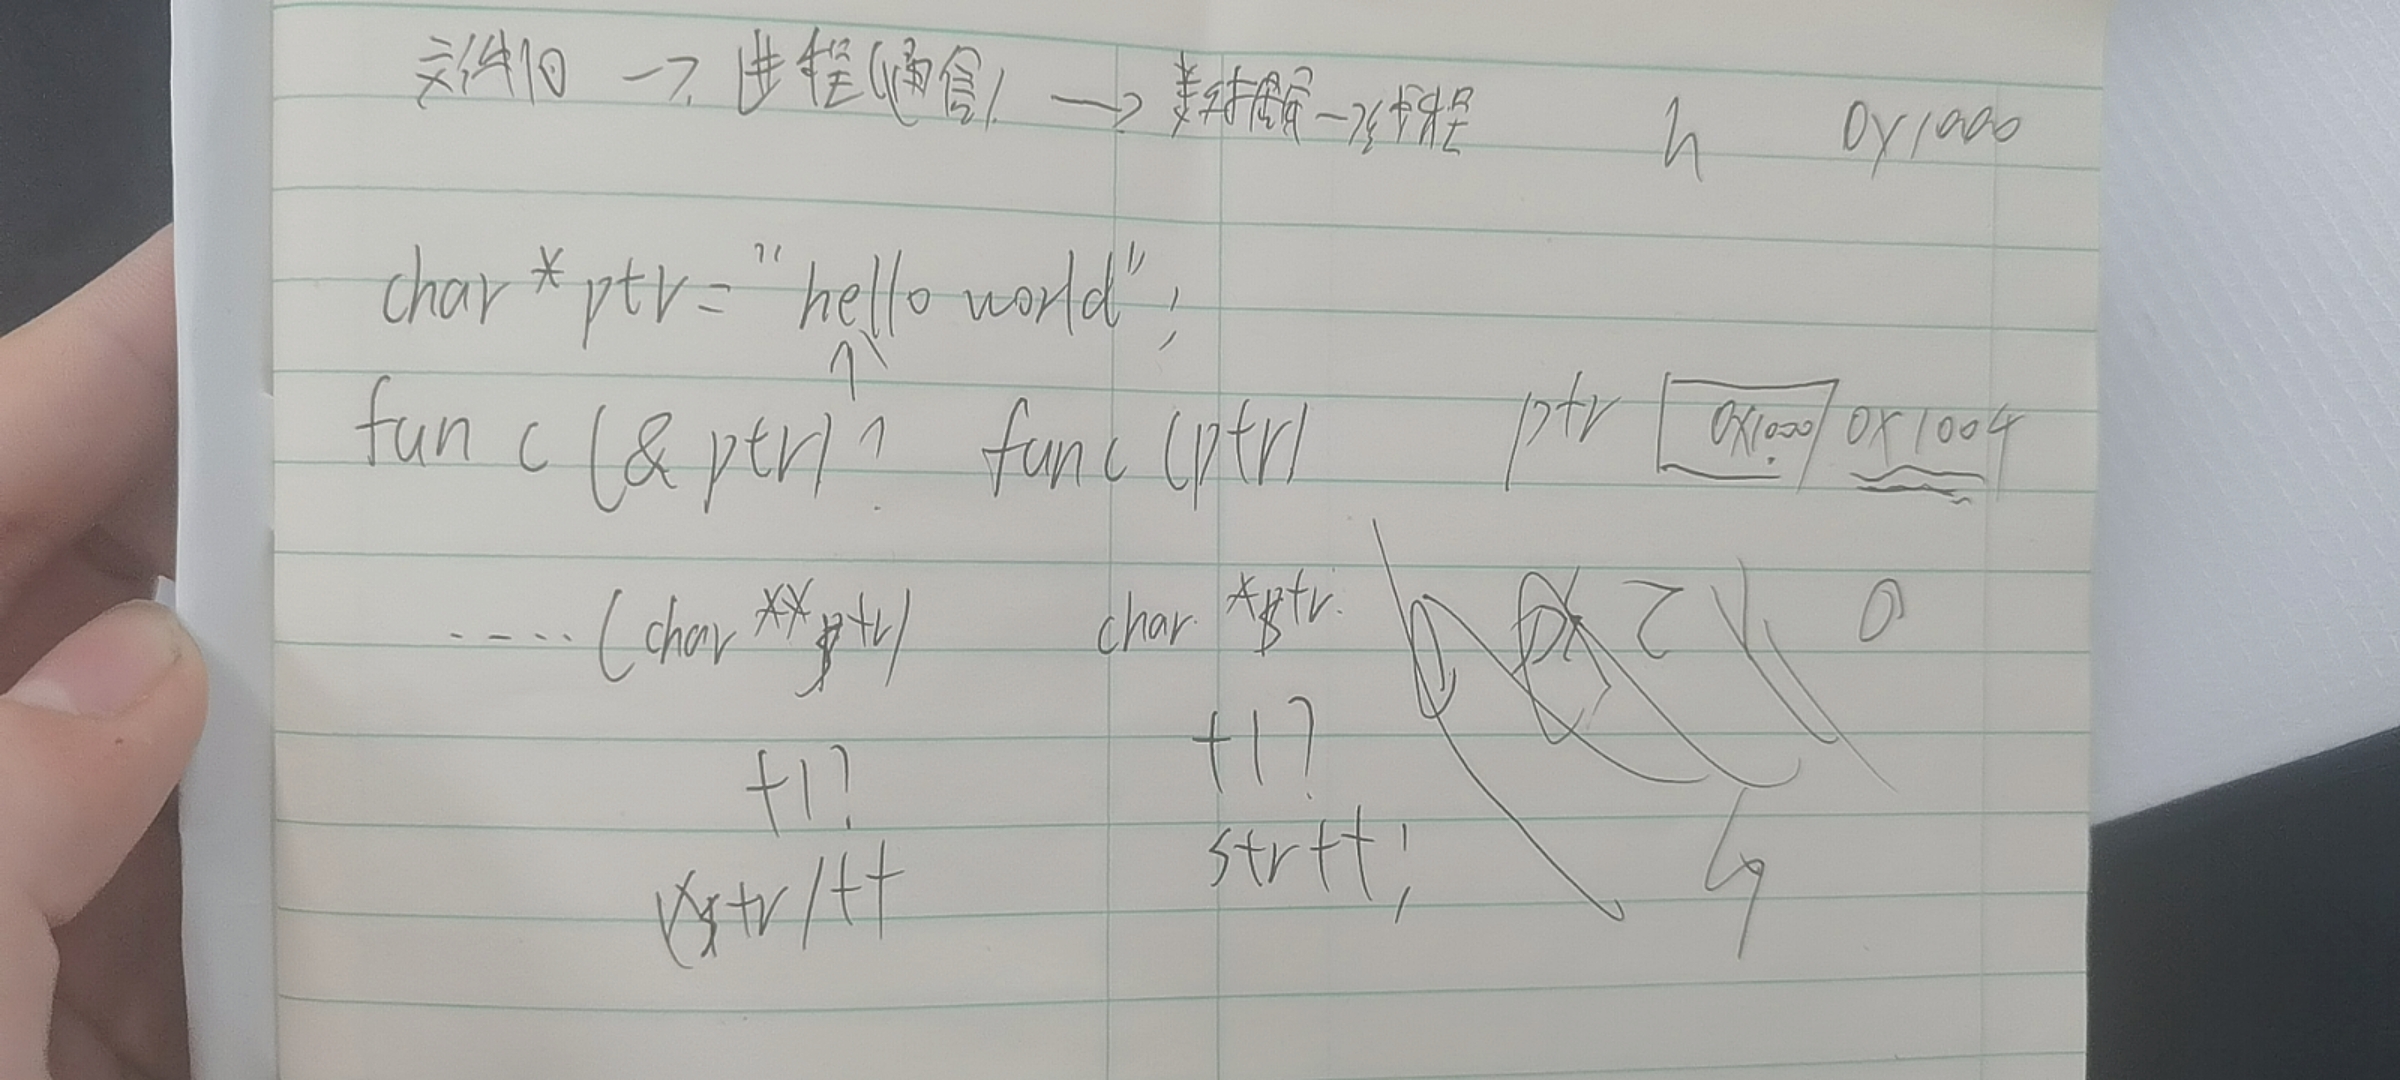 文件IO → 进程(通信) → 数据 → 线程 h 0x1000
char *ptr = "hello world";
func (&ptr)? func (ptr) ptr 0x1000 0x1004
.....(char **ptr) char *ptr. 0
+1? +1?
(*ptr)++ str++;